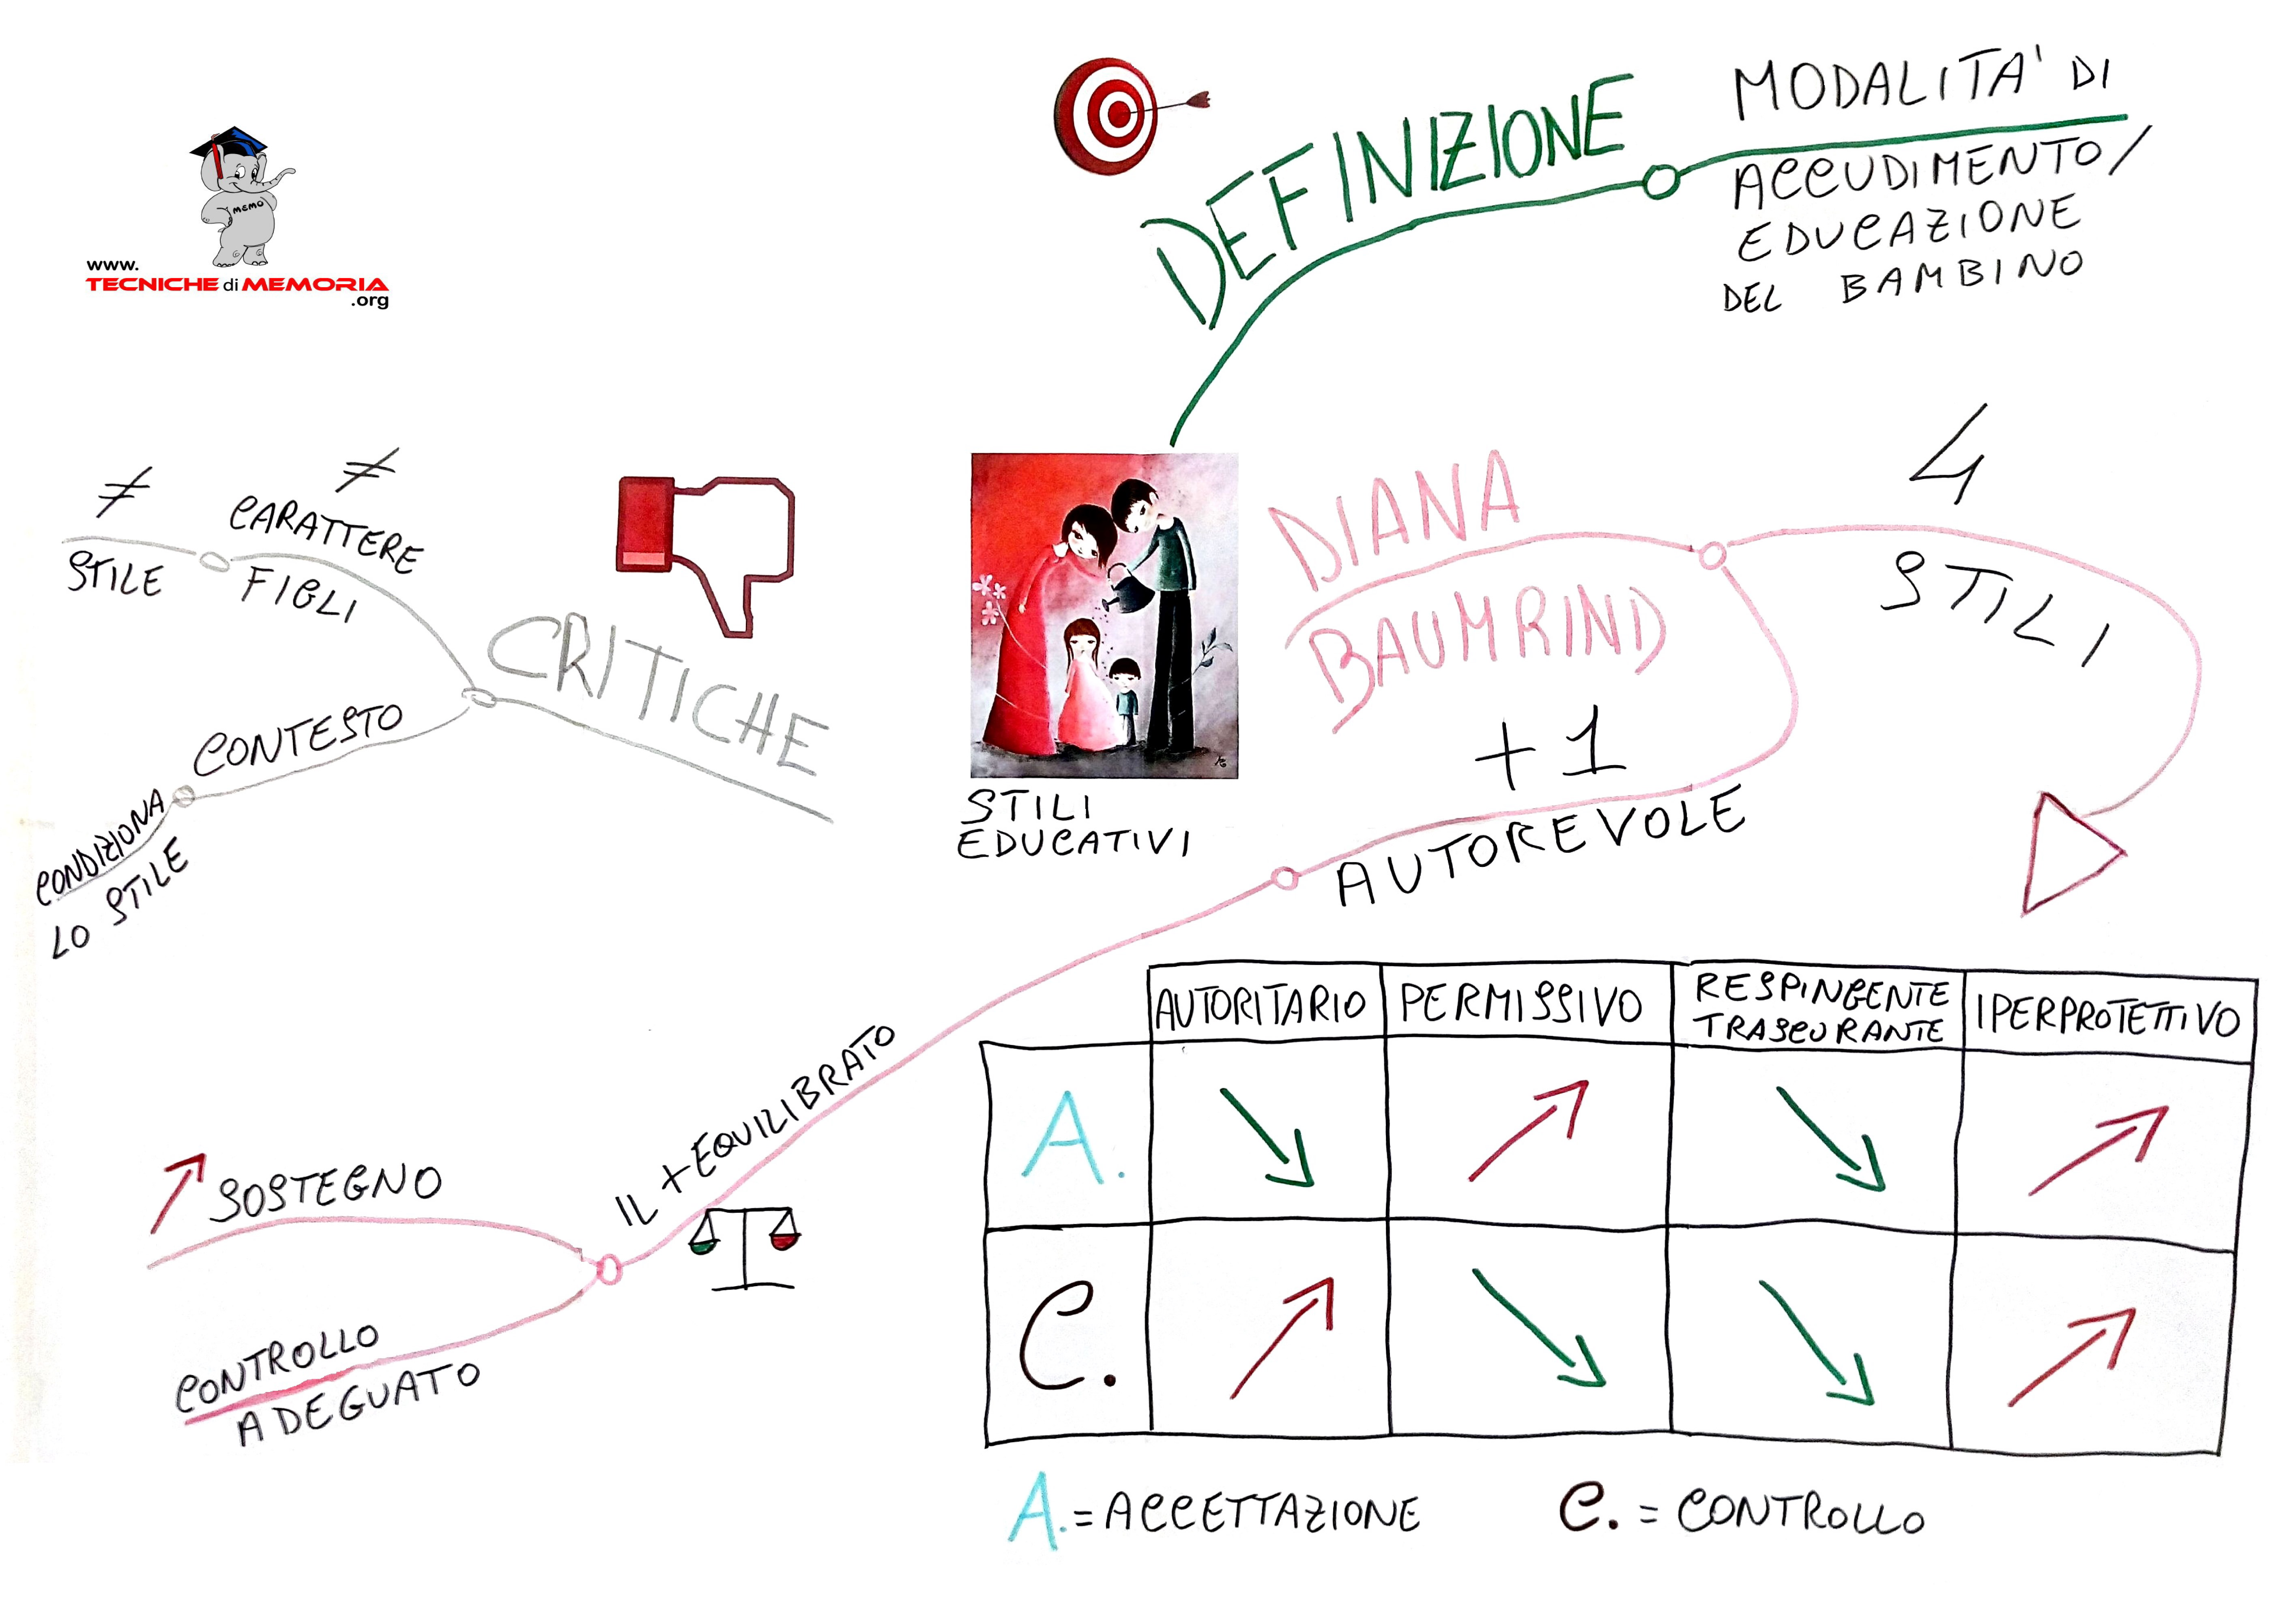 MEMO
www.
TECNICHE di MEMORIA
.org
DEFINIZIONE
MODALITA' DI
ACCUDIMENTO/
EDUCAZIONE
DEL BAMBINO
DIANA
BAUMRIND
4
STILI
+1
AUTOREVOLE
STILI
EDUCATIVI
IL + EQUILIBRATO
SOSTEGNO
CONTROLLO
ADEGUATO
CRITICHE
≠
CARATTERE
FIGLI
≠
STILE
CONTESTO
CONDIZIONA
LO STILE
AUTORITARIO PERMISSIVO RESPINGENTE IPERPROTETTIVO
TRASCURANTE
A. ↘ ↗ ↘ ↗
C. ↗ ↘ ↘ ↗
A. = ACCETTAZIONE C. = CONTROLLO